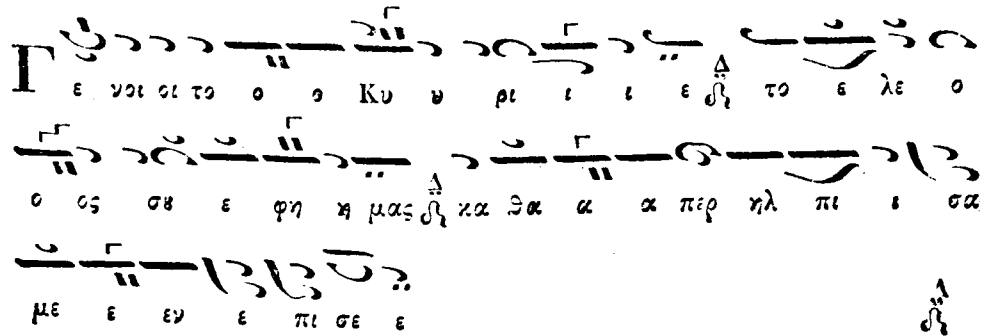 Γε νοι οι το ο ο Κυ υ ρι ι ι ε Δ το ε λε ο
ο ος συ ε φη η μας Δ κα θα α α περ ηλ πι ι σα
με ε εν ε πι σε ε Δ